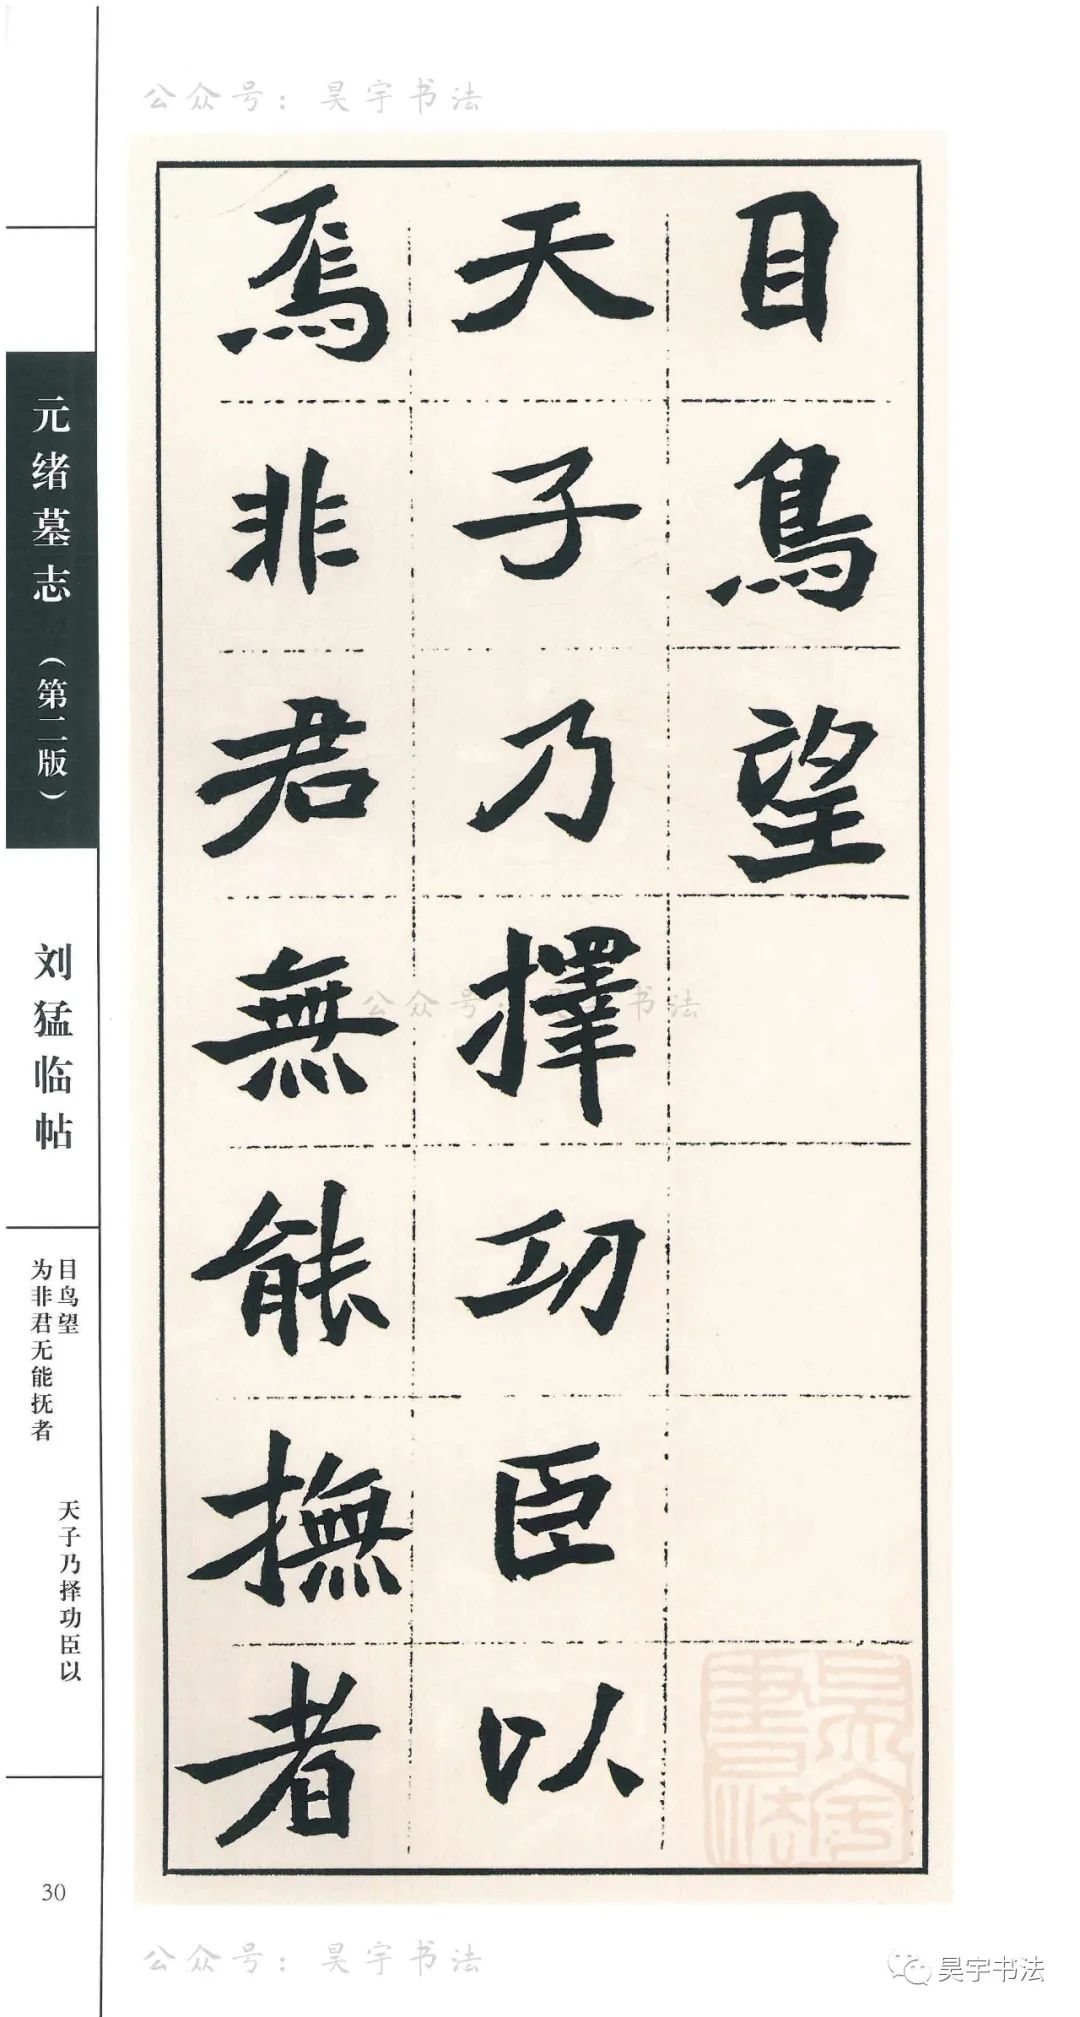 公众号：昊宇书法
目鳥望
天子乃擇功臣以
焉非君無能撫者
公众号：昊宇书法
元绪墓志（第二版）
刘猛临帖
目鸟望
天子乃择功臣以
为非君无能抚者
30
昊宇书法
公众号：昊宇书法
昊宇书法